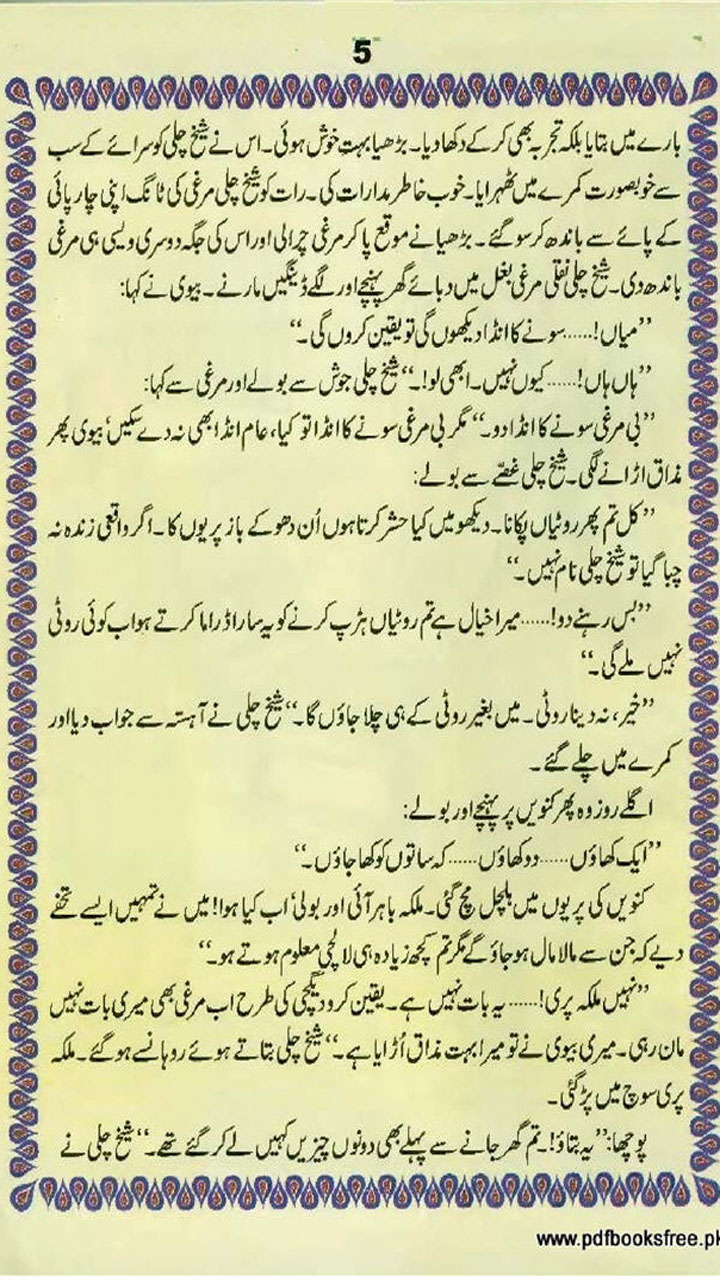 5
بارے میں بتایا بلکہ تجربہ بھی کر کے دکھا دیا۔ بڑھیا بہت خوش ہوئی۔ اس نے شیخ چلی کو سرائے کے سب
سے خوبصورت کمرے میں ٹھہرایا۔ خوب خاطر مدارات کی۔ رات کو شیخ چلی مرغی کی ٹانگ اپنی چارپائی
کے پائے سے باندھ کر سو گئے۔ بڑھیا نے موقع پا کر مرغی چرالی اور اس کی جگہ دوسری ویسی ہی مرغی
باندھ دی۔ شیخ چلی نقلی مرغی بغل میں دبائے گھر پہنچے اور لگے ڈینگیں مارنے۔ بیوی نے کہا:
”میاں!......سونے کا انڈا دیکھوں گی تو یقین کروں گی۔“
”ہاں ہاں!......کیوں نہیں۔ ابھی لو!۔“ شیخ چلی جوش سے بولے اور مرغی سے کہا:
”بی مرغی سونے کا انڈا دو۔“ مگر بی مرغی سونے کا انڈا تو کیا، عام انڈا بھی نہ دے سکیں‘ بیوی پھر
مذاق اڑانے لگی۔ شیخ چلی غصّے سے بولے:
”کل تم پھر روٹیاں پکانا۔ دیکھو میں کیا حشر کرتا ہوں اُن دھوکے باز پریوں کا۔ اگر واقعی زندہ نہ
چبا گیا تو شیخ چلی نام نہیں۔“
”بس رہنے دو!......میرا خیال ہے تم روٹیاں ہڑپ کرنے کو یہ سارا ڈراما کرتے ہو اب کوئی روٹی
نہیں ملے گی۔“
”خیر، نہ دینا روٹی۔ میں بغیر روٹی کے ہی چلا جاؤں گا۔“ شیخ چلی نے آہستہ سے جواب دیا اور
کمرے میں چلے گئے۔
اگلے روز وہ پھر کنویں پر پہنچے اور بولے:
”ایک کھاؤں......دو کھاؤں......کہ ساتوں کو کھا جاؤں۔“
کنویں کی پریوں میں ہلچل مچ گئی۔ ملکہ باہر آئی اور بولی‘ اب کیا ہوا! میں نے تمہیں ایسے تحفے
دیے کہ جن سے مالا مال ہو جاؤ گے مگر تم کچھ زیادہ ہی لالچی معلوم ہوتے ہو۔“
”نہیں ملکہ پری!...... یہ بات نہیں ہے۔ یقین کرو دیگچی کی طرح اب مرغی بھی میری بات نہیں
مان رہی۔ میری بیوی نے تو میرا بہت مذاق اُڑایا ہے۔“ شیخ چلی بتاتے ہوئے روہانسے ہو گئے۔ ملکہ
پری سوچ میں پڑ گئی۔
پوچھا:”یہ بتاؤ!۔ تم گھر جانے سے پہلے بھی دونوں چیزیں کہیں لے کر گئے تھے۔“ شیخ چلی نے
www.pdfbooksfree.pk